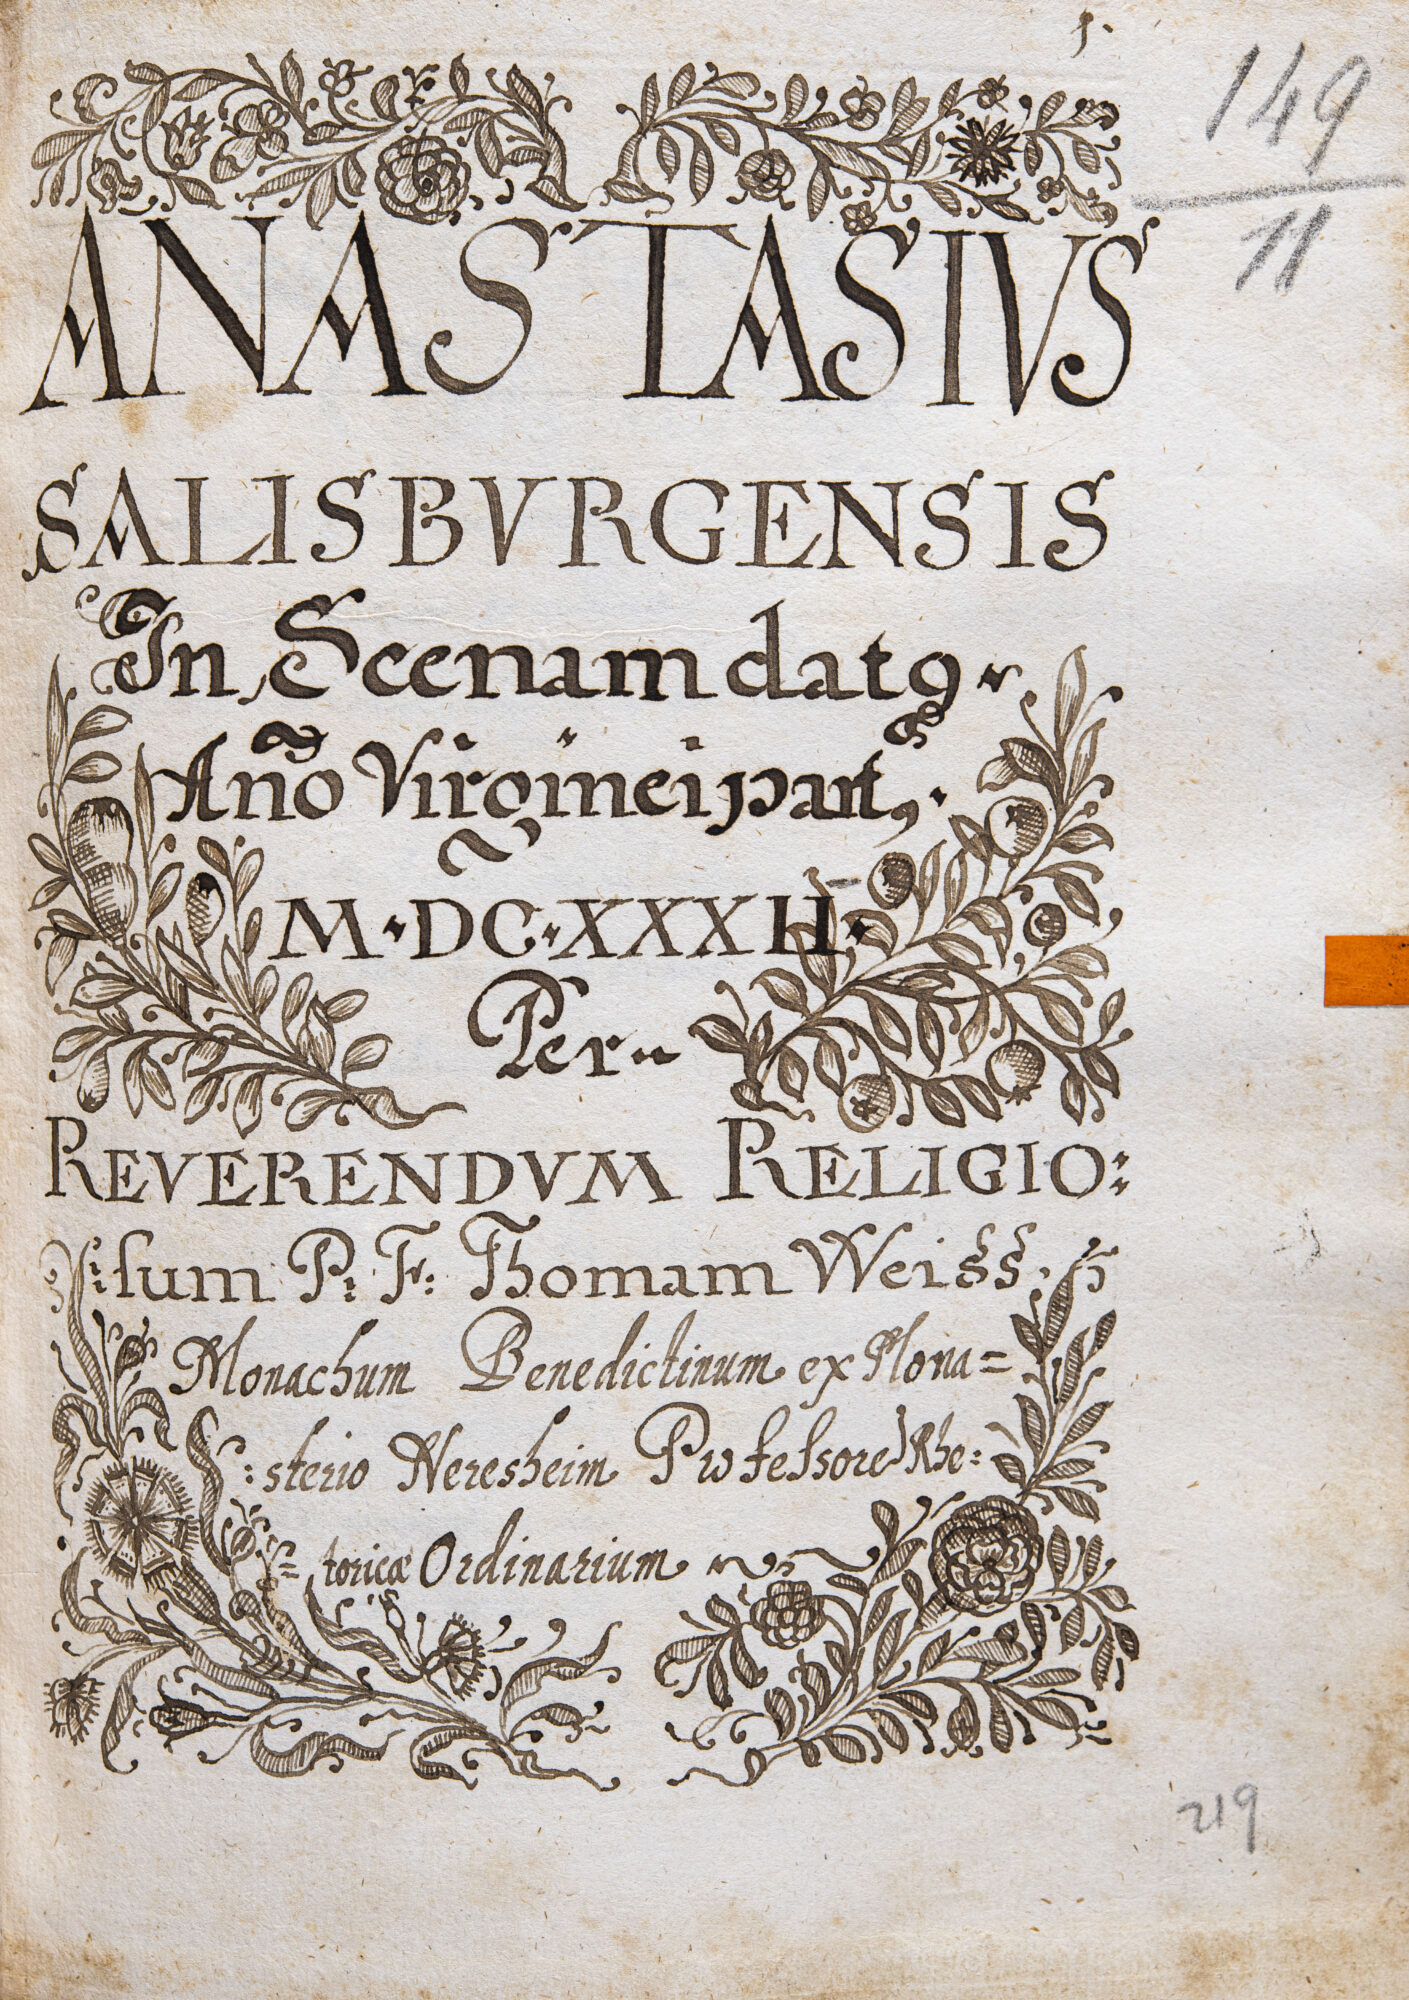 1.
149
11
ANASTASIVS
SALISBVRGENSIS
In Scenam datꝯ
Año Virginei partꝯ.
M·DC·XXXII·
Per
REVERENDVM RELIGIO:
:sum P: Fr: Thomam Weiss.
Monachum Benedictinum ex Mona=
:sterio Neresheim Professorē Rhe:
= toricæ Ordinarium
219